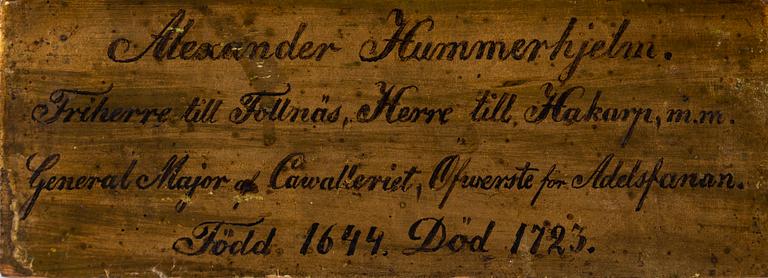 Alexander Hummerhjelm.
Friherre till Follnäs, Herre till Hakarp, m.m.
General Major af Cawalleriet, Ofwerste för Adelsfanan.
Född 1644. Död 1723.